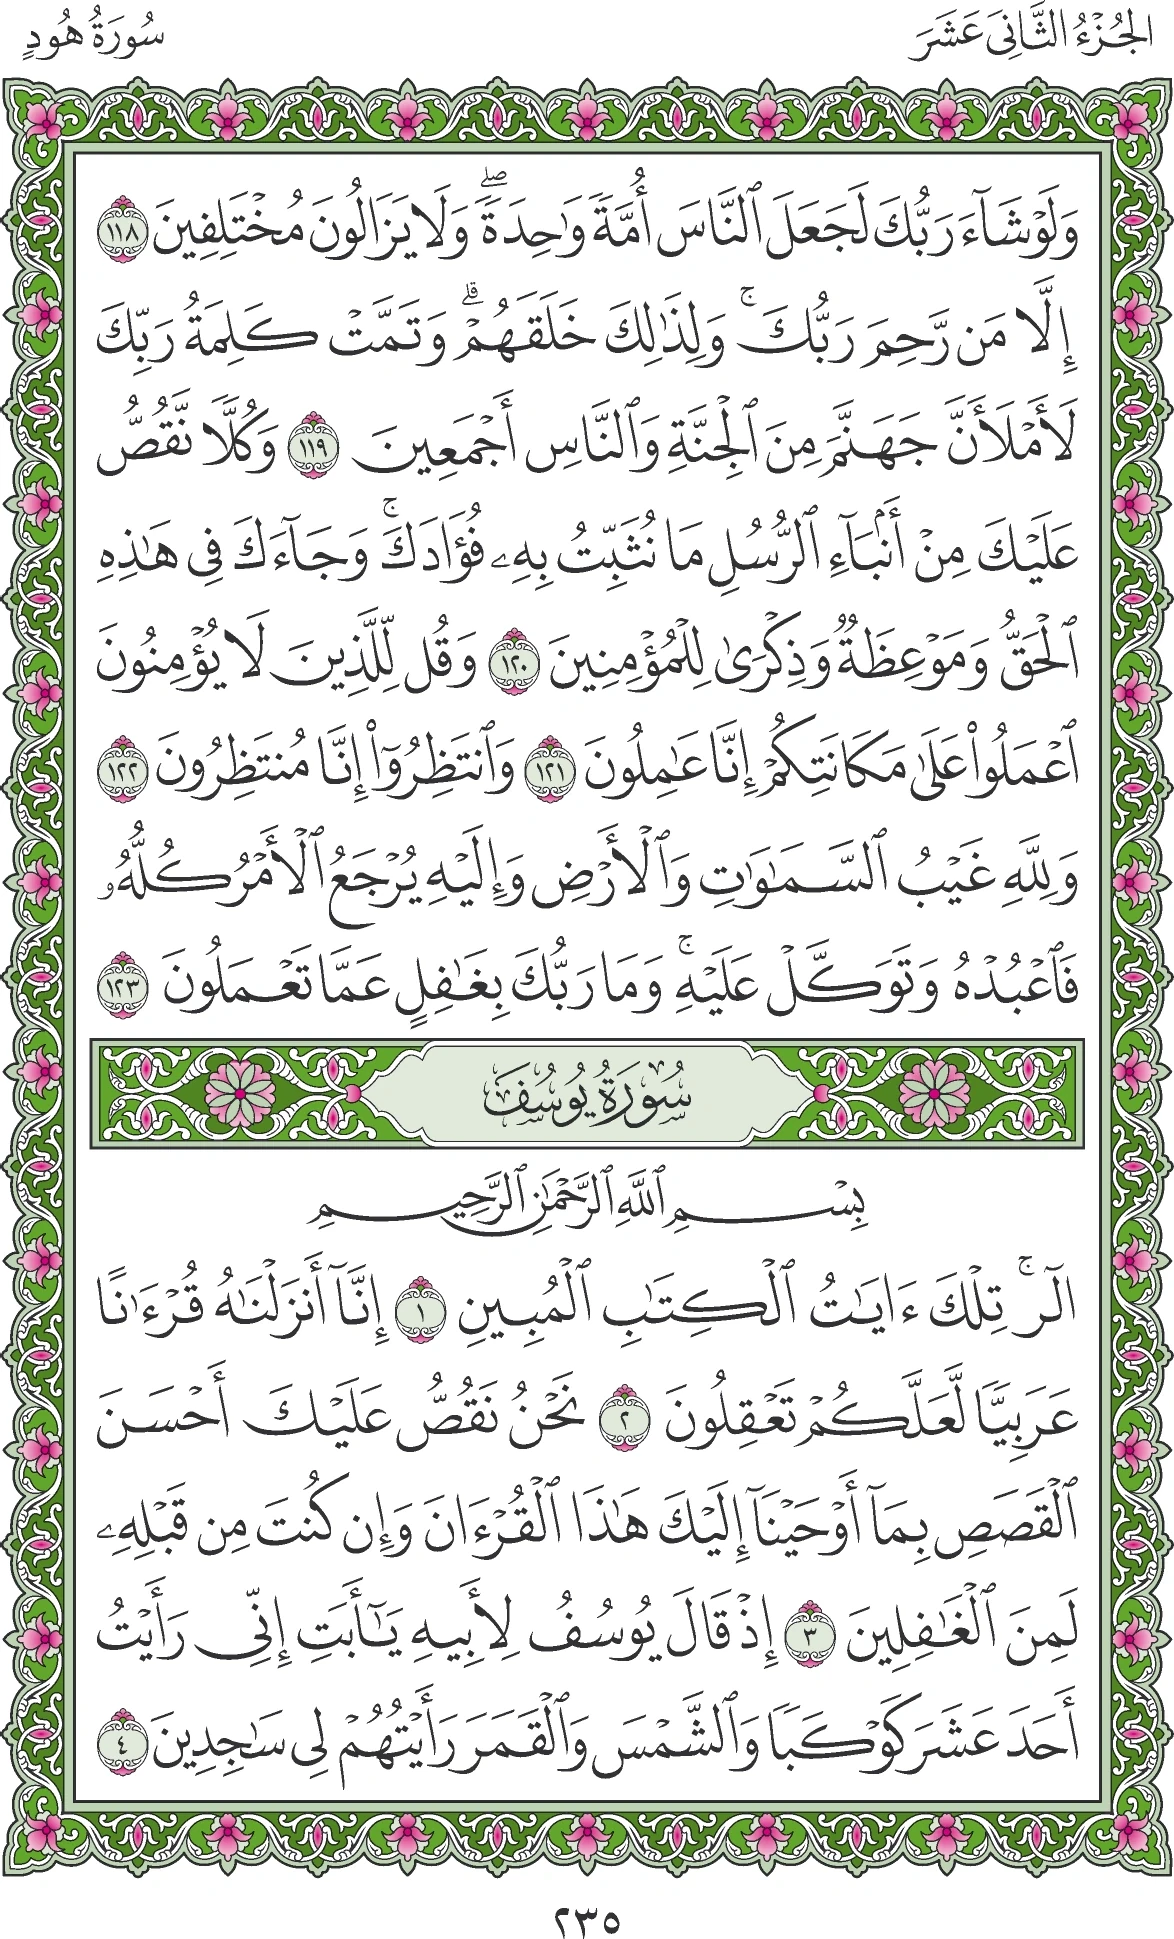 الجُزْءُ الثَّانِىَ عَشَرَ
سُورَةُ هُودٍ
وَلَوْ شَآءَ رَبُّكَ لَجَعَلَ ٱلنَّاسَ أُمَّةً وَٰحِدَةًۖ وَلَا يَزَالُونَ مُخْتَلِفِينَ ١١٨
إِلَّا مَن رَّحِمَ رَبُّكَۚ وَلِذَٰلِكَ خَلَقَهُمْۗ وَتَمَّتْ كَلِمَةُ رَبِّكَ
لَأَمْلَأَنَّ جَهَنَّمَ مِنَ ٱلْجِنَّةِ وَٱلنَّاسِ أَجْمَعِينَ ١١٩ وَكُلًّا نَّقُصُّ
عَلَيْكَ مِنْ أَنۢبَآءِ ٱلرُّسُلِ مَا نُثَبِّتُ بِهِۦ فُؤَادَكَۚ وَجَآءَكَ فِى هَٰذِهِ
ٱلْحَقُّ وَمَوْعِظَةٌ وَذِكْرَىٰ لِلْمُؤْمِنِينَ ١٢٠ وَقُل لِّلَّذِينَ لَا يُؤْمِنُونَ
ٱعْمَلُوا۟ عَلَىٰ مَكَانَتِكُمْ إِنَّا عَٰمِلُونَ ١٢١ وَٱنتَظِرُوٓا۟ إِنَّا مُنتَظِرُونَ ١٢٢
وَلِلَّهِ غَيْبُ ٱلسَّمَٰوَٰتِ وَٱلْأَرْضِ وَإِلَيْهِ يُرْجَعُ ٱلْأَمْرُ كُلُّهُۥ
فَٱعْبُدْهُ وَتَوَكَّلْ عَلَيْهِۚ وَمَا رَبُّكَ بِغَٰفِلٍ عَمَّا تَعْمَلُونَ ١٢٣
سُورَةُ يُوسُفَ
بِسْمِ ٱللَّهِ ٱلرَّحْمَٰنِ ٱلرَّحِيمِ
الٓرۚ تِلْكَ ءَايَٰتُ ٱلْكِتَٰبِ ٱلْمُبِينِ ١ إِنَّآ أَنزَلْنَٰهُ قُرْءَٰنًا
عَرَبِيًّا لَّعَلَّكُمْ تَعْقِلُونَ ٢ نَحْنُ نَقُصُّ عَلَيْكَ أَحْسَنَ
ٱلْقَصَصِ بِمَآ أَوْحَيْنَآ إِلَيْكَ هَٰذَا ٱلْقُرْءَانَ وَإِن كُنتَ مِن قَبْلِهِۦ
لَمِنَ ٱلْغَٰفِلِينَ ٣ إِذْ قَالَ يُوسُفُ لِأَبِيهِ يَٰٓأَبَتِ إِنِّى رَأَيْتُ
أَحَدَ عَشَرَ كَوْكَبًا وَٱلشَّمْسَ وَٱلْقَمَرَ رَأَيْتُهُمْ لِى سَٰجِدِينَ ٤
٢٣٥